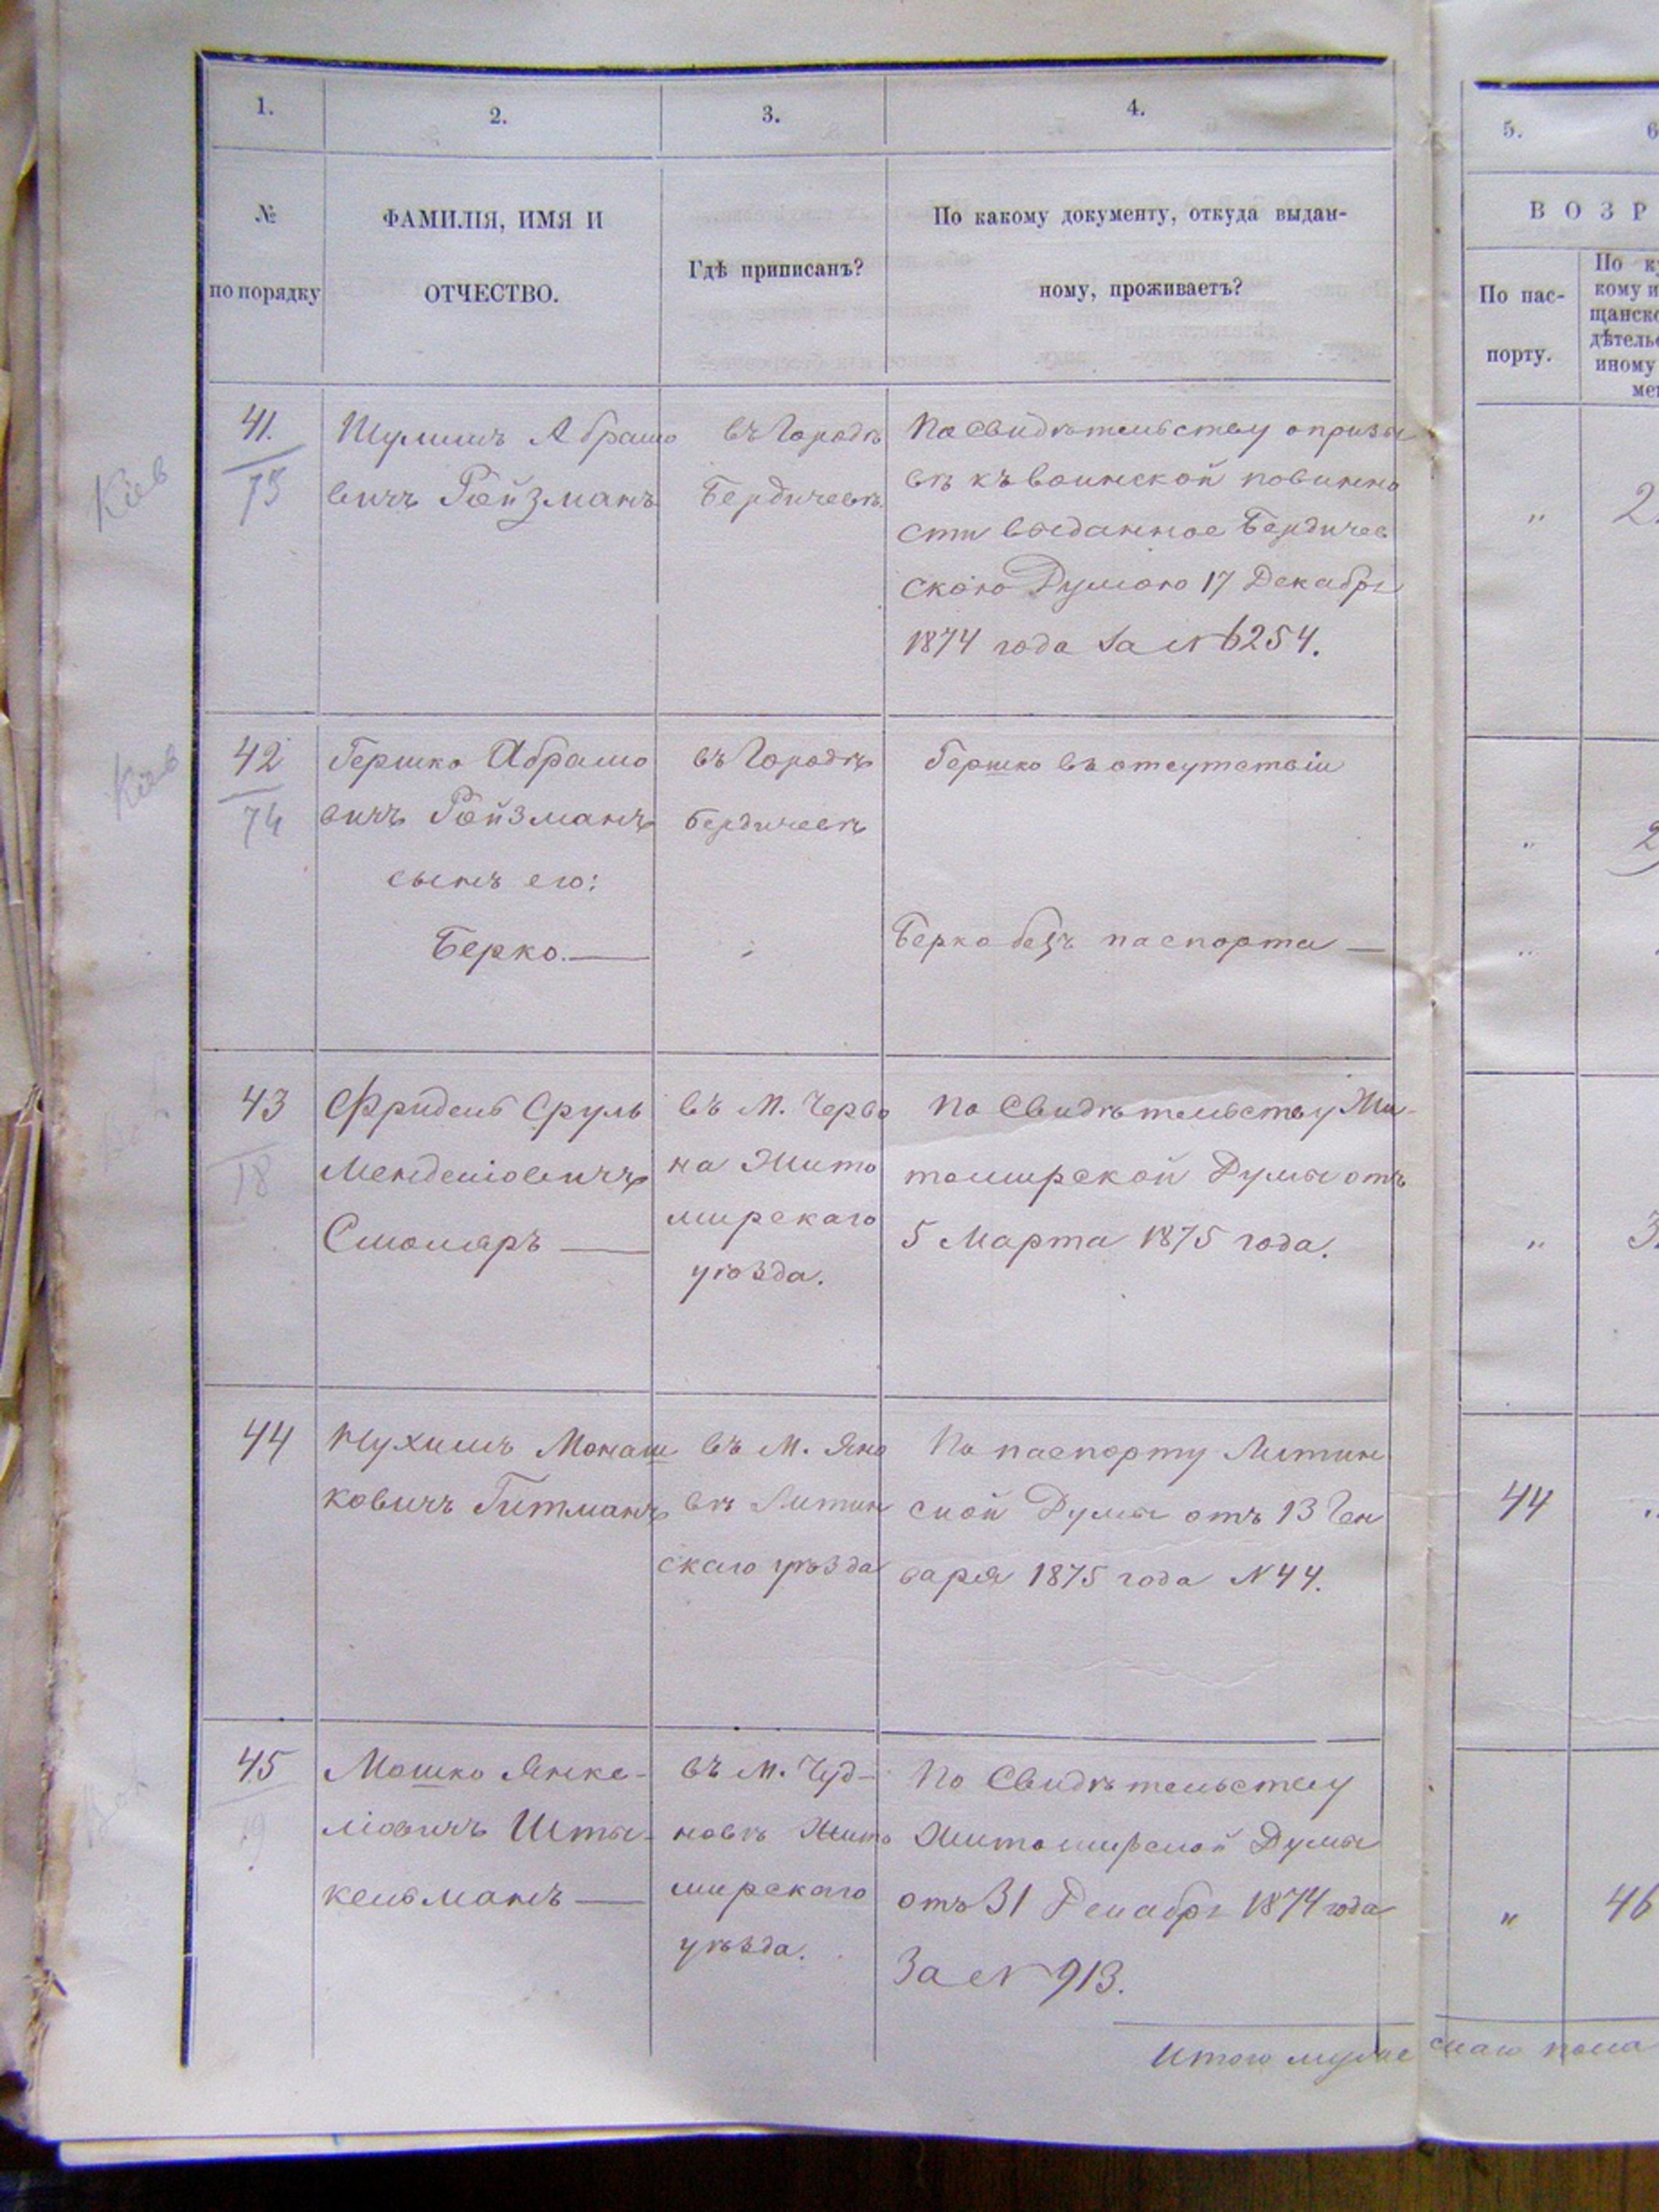 1.
2.
3.
4.
5.
6
№
по порядку
ФАМИЛІЯ, ИМЯ И
ОТЧЕСТВО.
Гдѣ приписанъ?
По какому документу, откуда выдан-
ному, проживаетъ?
ВОЗР
По пас-
порту.
По ку
кому и
щанско
дѣтель
иному
мен
Кіев
41.
73
Шулимъ Абрамо
вичъ Ройзманъ
въ Городѣ
Бердичевѣ
По свидѣтельству о призы
вѣ къ воинской повинно
сти выданное Бердичев
скою Думою 17 Декабря
1874 года за № 6254.
„
2
Кіев
42
74
Гершко Абрамо
вичъ Ройзманъ
сынъ его:
Берко.—
въ Городѣ
Бердичевѣ
Гершко въ отсутствіи
Берко безъ паспорта —
„
2
„
43
18
Фридель Сруль
Менделіовичъ
Смоляръ —
въ М. Черво
на Жито
мирскаго
уѣзда.
По Свидѣтельству Жи-
томирской Думы отъ
5 Марта 1875 года.
„
3
44
Нухимъ Монаш
ковичъ Гитманъ
въ М. Яно
вѣ Литин
скаго уѣзда
По паспорту Литин
ской Думы отъ 13 Ген
варя 1875 года № 44.
44
„
45
19
Мошко Янке-
ліовичъ Шты-
кельманъ —
въ М. Чуд-
новѣ Жито
мирскаго
уѣзда.
По Свидѣтельству
Житомирской Думы
отъ 31 Декабря 1874 года
За № 913.
„
46
Итого мужескаго пола